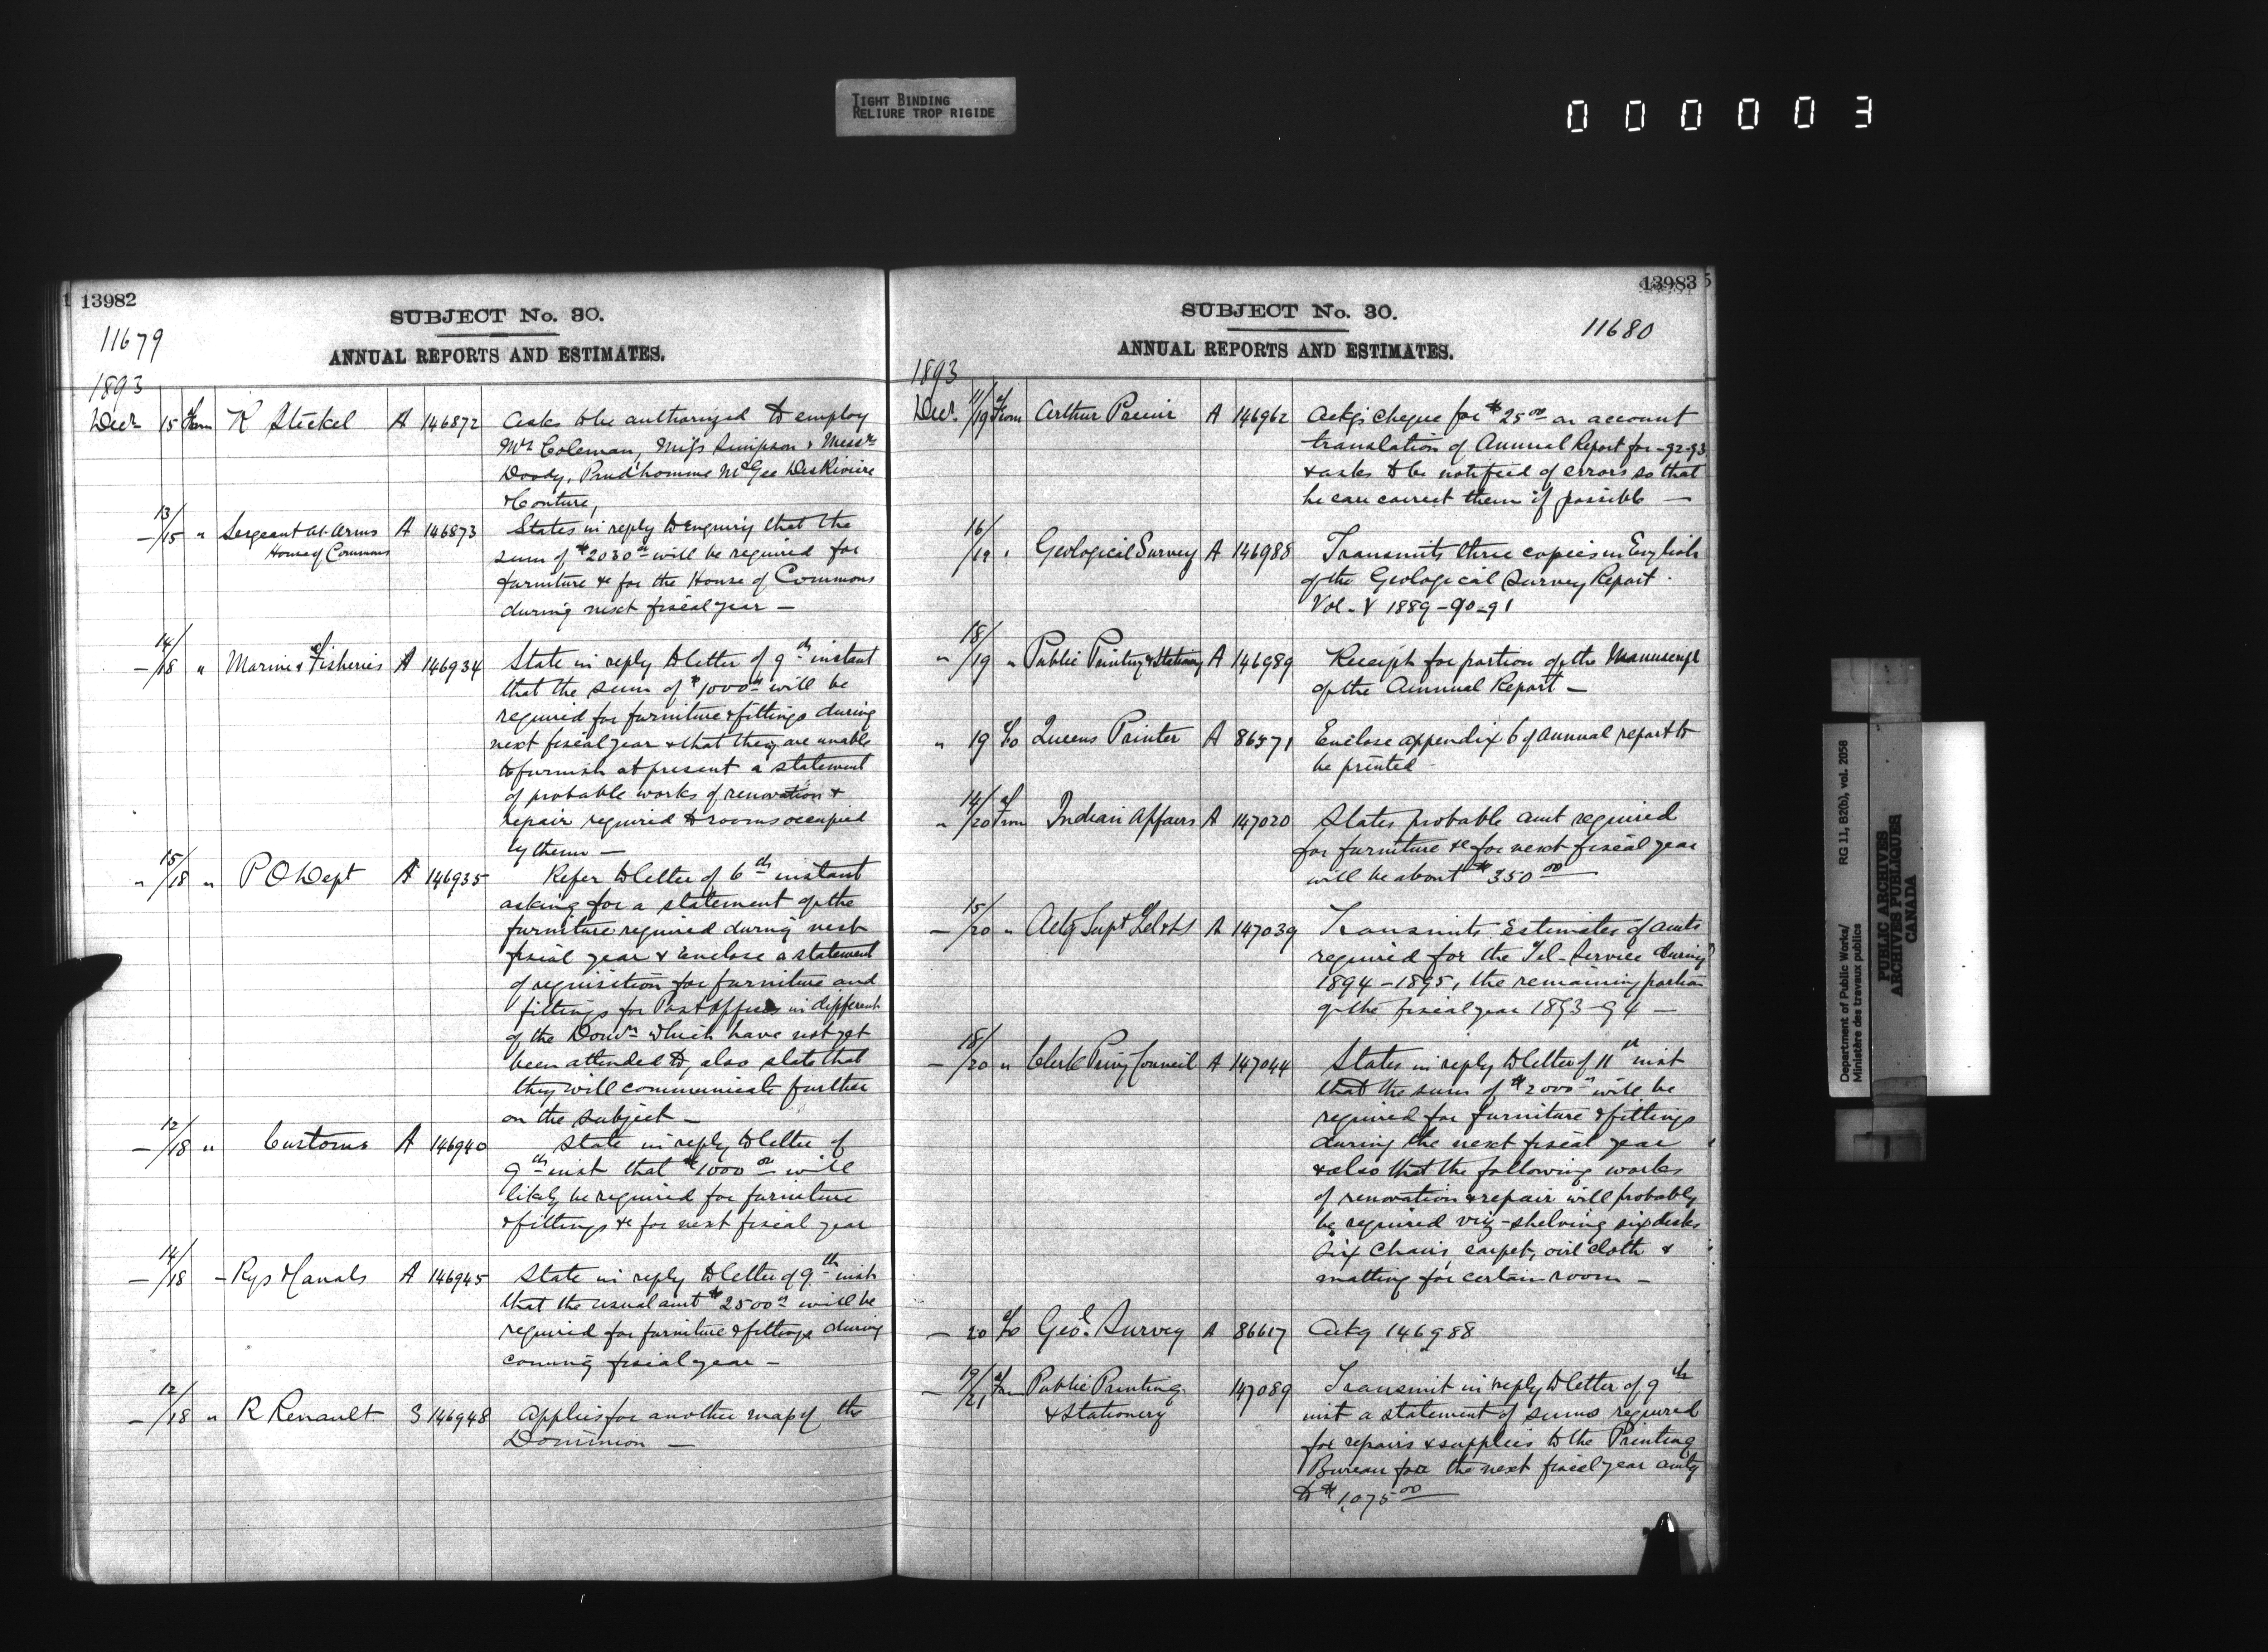 TIGHT BINDING
RELIURE TROP RIGIDE
000003
13982
SUBJECT No. 30.
11679
ANNUAL REPORTS AND ESTIMATES.
1893
Decr 15 from R Steckel A 146872 Asks to be authorized to employ
Mrs Coleman, Miss Simpson & Messrs
Doody, Prud'homme McGee DesRiviere
& Couture,
13/15 " Sergeant-at-Arms House of Commons A 146873 States in reply to enquiry that the
sum of $2030 00 will be required for
furniture &c for the House of Commons
during next fiscal year –
14/18 " Marine & Fisheries A 146934 State in reply to letter of 9th instant
that the sum of $1000 00 will be
required for furniture & fittings during
next fiscal year & that they are unable
to furnish at present a statement
of probable works of renovation &
repair required to rooms occupied
by them –
" 15/18 " P O Dept A 146935 Refer to letter of 6th instant
asking for a statement of the
furniture required during next
fiscal year & Enclose a statement
of requisition for furniture and
fittings for Post offices in different
of the Domn which have not yet
been attended to, also state that
they will communicate further
on the subject –
– 12/18 " Customs A 146940 State in reply to letter of
9th inst that $1000 00 will
likely be required for furniture
& fittings &c for next fiscal year
– 14/18 – Rys & Canals A 146945 State in reply to letter of 9th inst
that the usual amt $2500 00 will be
required for furniture & fittings during
coming fiscal year –
– 12/18 " R Renault S 146948 Applies for another map of the
Dominion –
13983
SUBJECT No. 30.
11680
ANNUAL REPORTS AND ESTIMATES.
1893
Decr. 11/19 from Arthur A 146962 Ackgs cheque for $25 00 on account
translation of Annual Report for -92-93
& asks to be notified of errors so that
he can correct them if possible –
16/19 " Geological Survey A 146988 Transmits three copies in English
of the Geological Survey Report.
Vol. V 1889-90-91
" 18/19 " Public Printing & Stationery A 146989 Receipt for portion of the Manuscript
of the Annual Report –
" 19 To Queens Printer A 86571 Enclose appendix 6 of Annual report to
be printed
" 14/20 from Indian Affairs A 147020 States probable amt required
for furniture &c for next fiscal year
will be about $350 00
– 15/20 " Actg Supt Tel A 147039 Transmits Estimates of amts
required for the Tel-Service during
1894-1895, the remaining portion
of the fiscal year 1893-94 –
– 18/20 " Clerk Privy Council A 147044 States in reply to letter of 11th inst
that the sum of $2000 00 will be
required for furniture & fittings
during the next fiscal year
& also that the following works
of renovation & repair will probably
be required viz – shelving six desks
six chairs, carpet, oil cloth &
matting for certain room –
– 20 To Geol. Survey A 86617 Ackg 146988
– 19/21 from Public Printing & Stationery 147089 Transmit in reply to letter of 9th
inst a statement of sums required
for repairs & supplies to the Printing
Bureau for the next fiscal year amtg
to $1,075 00
Department of Public Works/
Ministère des travaux publics
RG 11, B2(b), vol. 2058
PUBLIC ARCHIVES
ARCHIVES PUBLIQUES
CANADA